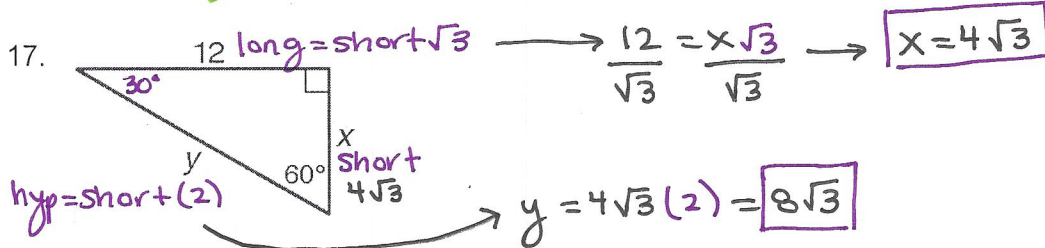 17.
12 long=short√3 → 12/√3 = x√3/√3 → x=4√3
30°
x
y
60°
short
4√3
hyp=short(2) → y = 4√3(2) = 8√3